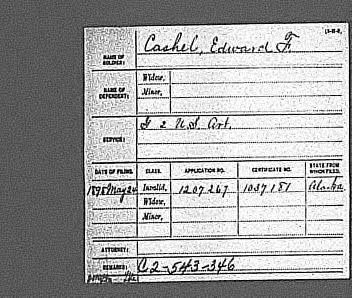 NAME OF SOLDIER: Cashel, Edward F.
NAME OF DEPENDENT: Widow,
Minor,
SERVICE: G 2 U.S. Art.
DATE OF FILING. CLASS. APPLICATION NO. CERTIFICATE NO. STATE FROM WHICH FILED.
1898 May 24 Invalid, 1207267 1037181 Alaska
Widow,
Minor,
ATTORNEY:
REMARKS: C2-543-346